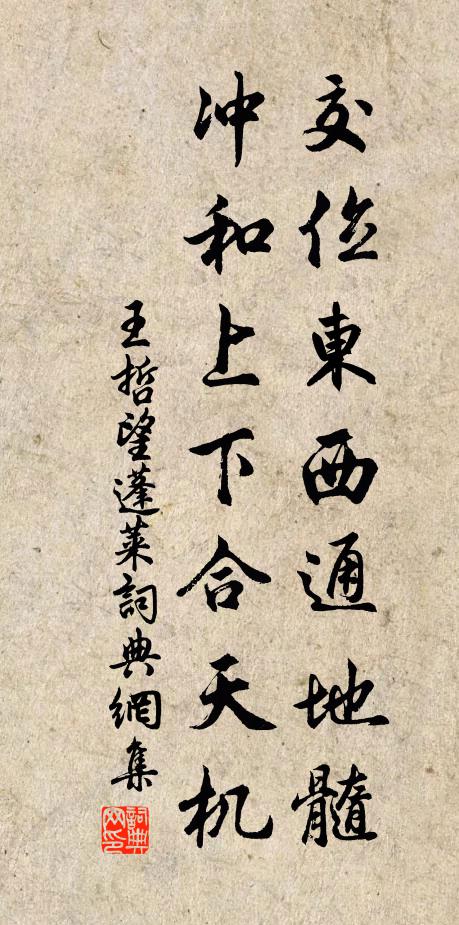 交俭東西通地髓
冲和上下合天机
王哲望蓬萊詞典網集
詞典
网印